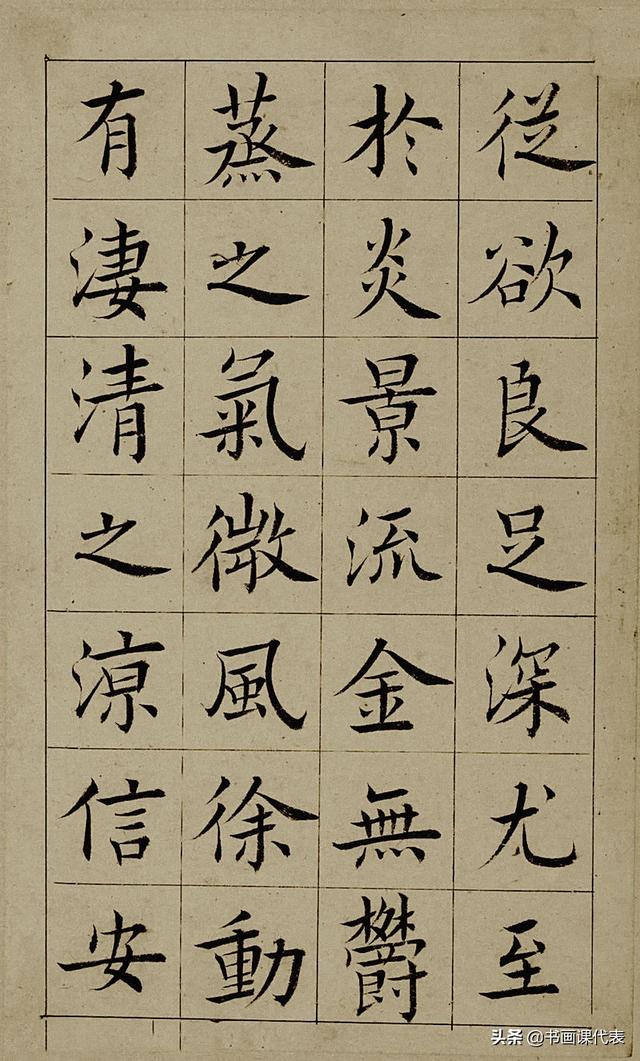 從欲良足深尤至
於炎景流金無欝
蒸之氣微風徐動
有淒清之涼信安
头条 @书画课代表